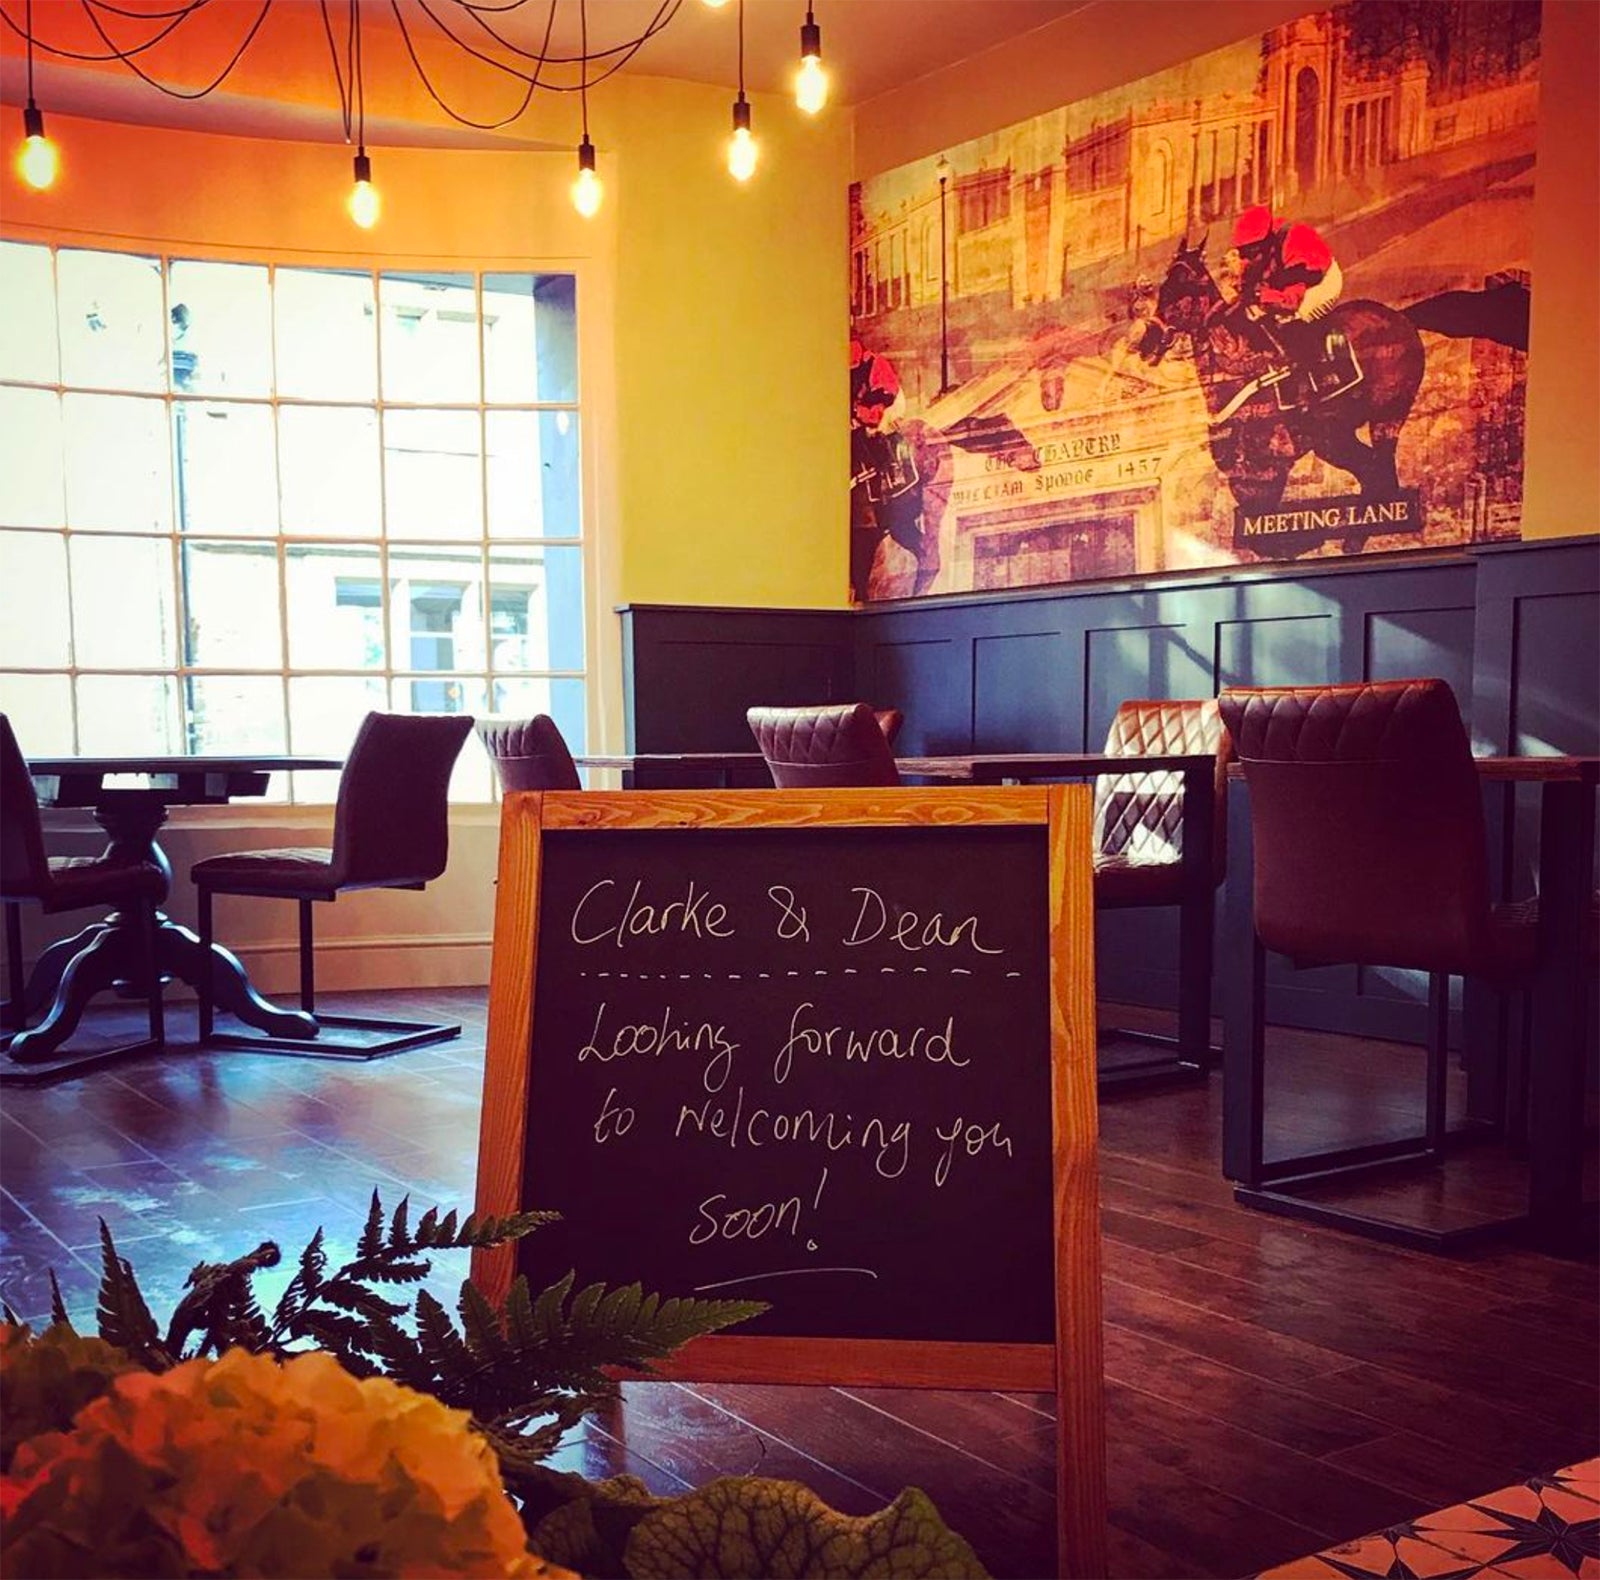 THE CHANTRY
WILLIAM SPODDE 1457
MEETING LANE
Clarke & Dean
Looking forward
to welcoming you
soon!